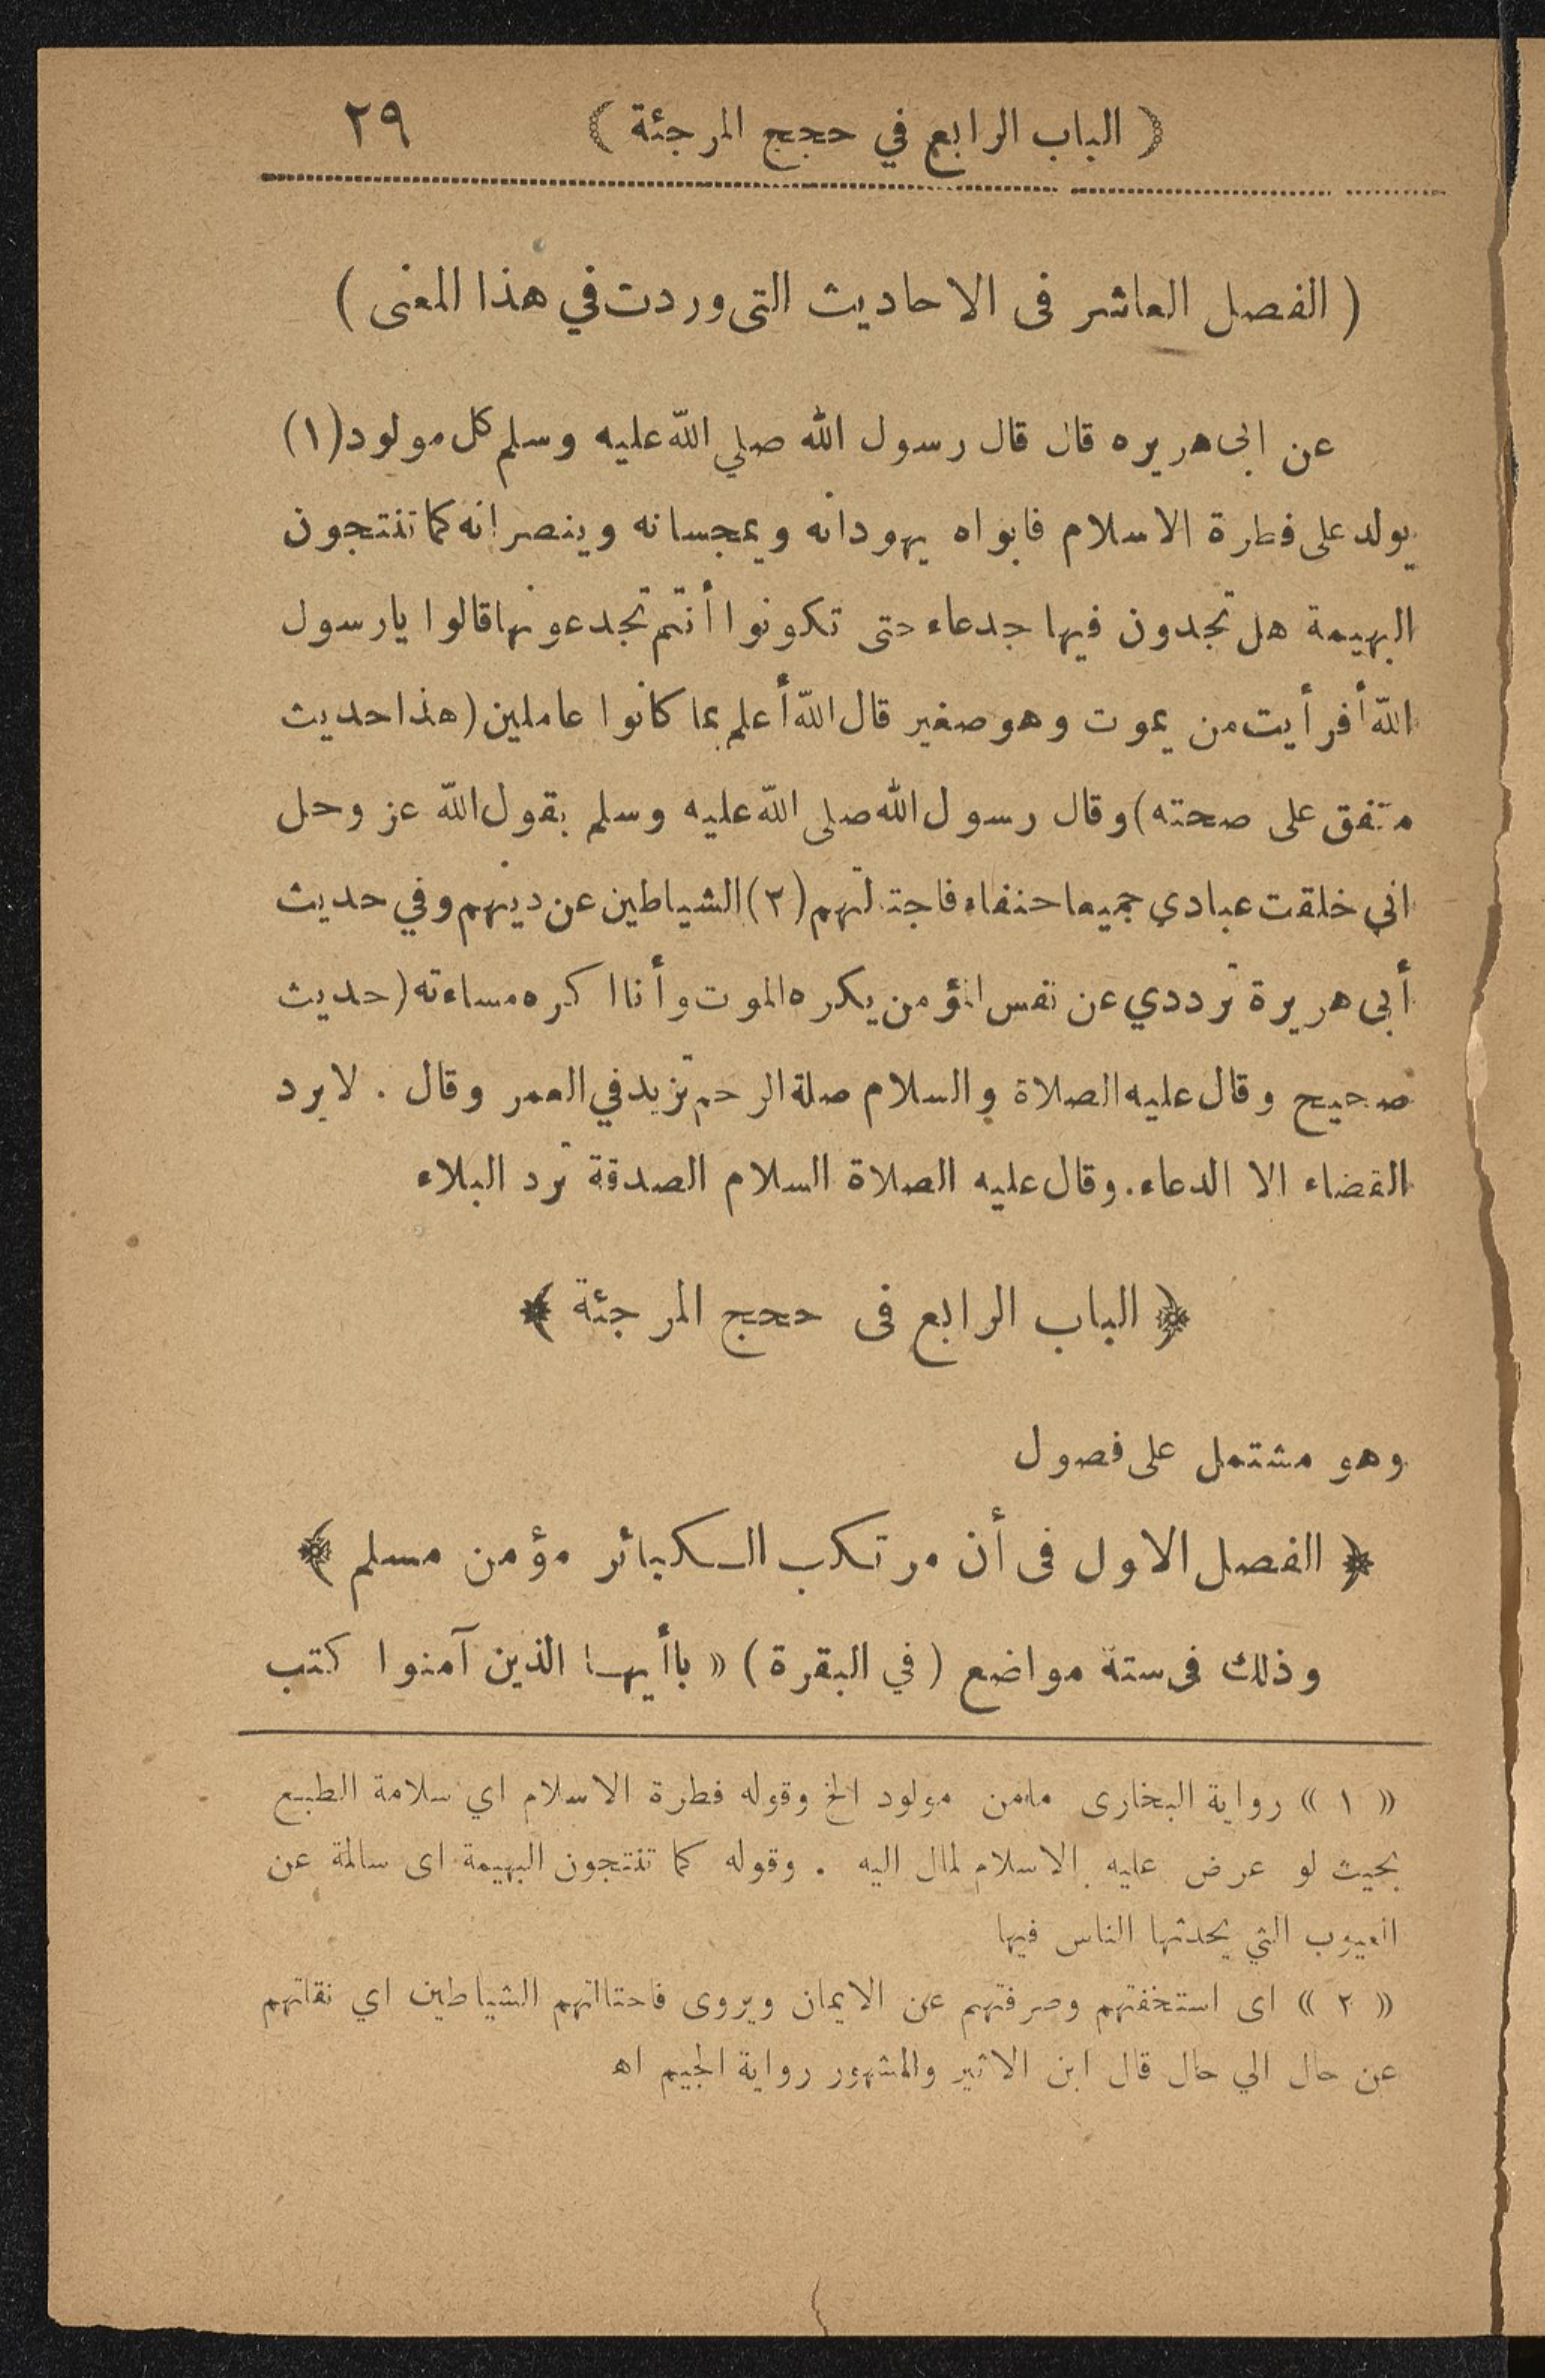 ( الباب الرابع في حجج المرجئة ) ٢٩
( الفصل العاشر فى الاحاديث التى وردت في هذا المعنى )
عن ابى هريره قال قال رسول الله صلي الله عليه وسلم كل مولود (١)
يولد على فطرة الاسلام فابواه يهودانه ويمجسانه وينصرانه كما تنتجون
البهيمة هل تجدون فيها جدعاء حتى تكونوا أنتم تجدعونها قالوا يا رسول
الله أفرأيت من يموت وهو صغير قال الله أعلم بما كانوا عاملين (هذا حديث
متفق على صحته) وقال رسول الله صلى الله عليه وسلم يقول الله عز وجل
اني خلقت عبادي جميعا حنفاء فاجتالتهم (٢) الشياطين عن دينهم وفي حديث
أبى هريرة ترددي عن نفس المؤمن يكره الموت وأنا اكره مساءته (حديث
صحيح وقال عليه الصلاة والسلام صلة الرحم تزيد في العمر وقال . لا يرد
القضاء الا الدعاء . وقال عليه الصلاة السلام الصدقة ترد البلاء
﴿ الباب الرابع فى حجج المرجئة ﴾
وهو مشتمل على فصول
﴿ الفصل الاول فى أن مرتكب الكبائر مؤمن مسلم ﴾
وذلك فى ستة مواضع ( في البقرة ) « ياأيها الذين آمنوا كتب
« ١ » رواية البخارى مامن مولود الخ وقوله فطرة الاسلام اي سلامة الطبع
بحيث لو عرض عليه الاسلام لمال اليه . وقوله كما تنتجون البهيمة اى سالمة عن
العيوب التي يحدثها الناس فيها
« ٢ » اى استخفتهم وصرفتهم عن الايمان ويروى فاحتالتهم الشياطين اي نقلتهم
عن حال الي حال قال ابن الاثير والمشهور رواية الجيم اه